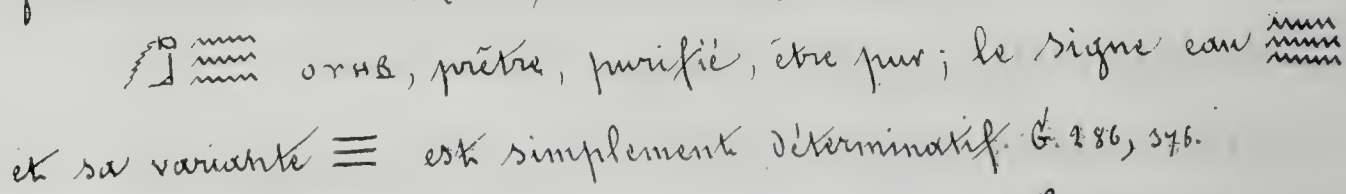 𓃂𓈗 ⲟⲩⲏⲃ, prêtre, purifié, être pur; le signe eau 𓈗
et sa variante ☰ est simplement déterminatif. G. 286, 376.